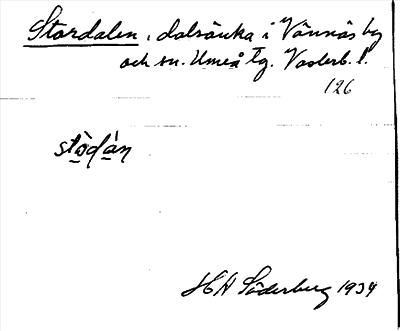 Stordalen, dalsänka i Vännäs by
och sn. Umeå tg. Västerb. l.
126
stòdàn
HA Söderberg 1934